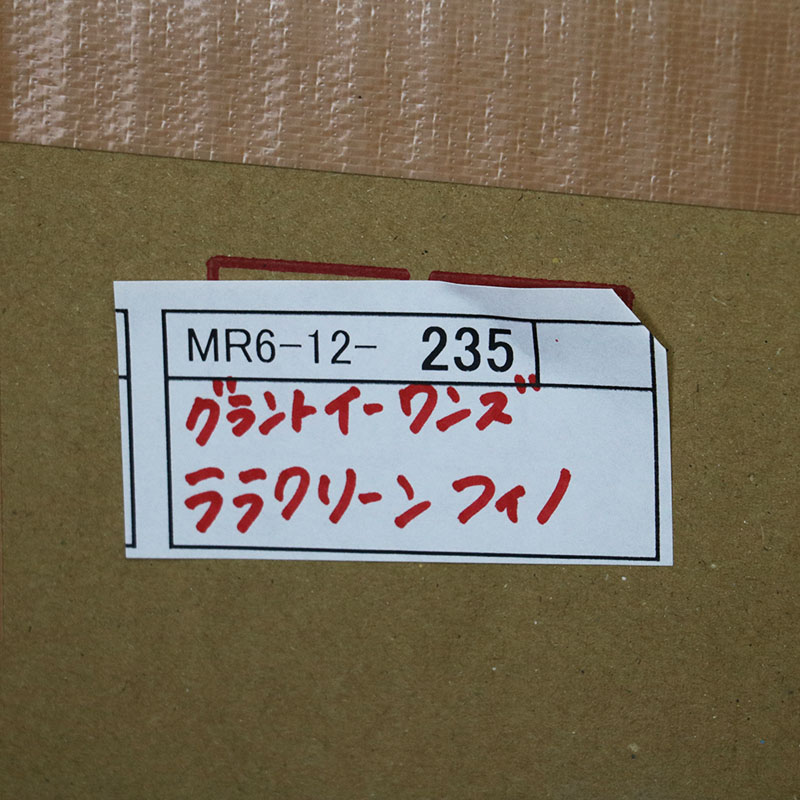 MR6-12- 235
グラントイーワンズ
ララクリーン フィノ